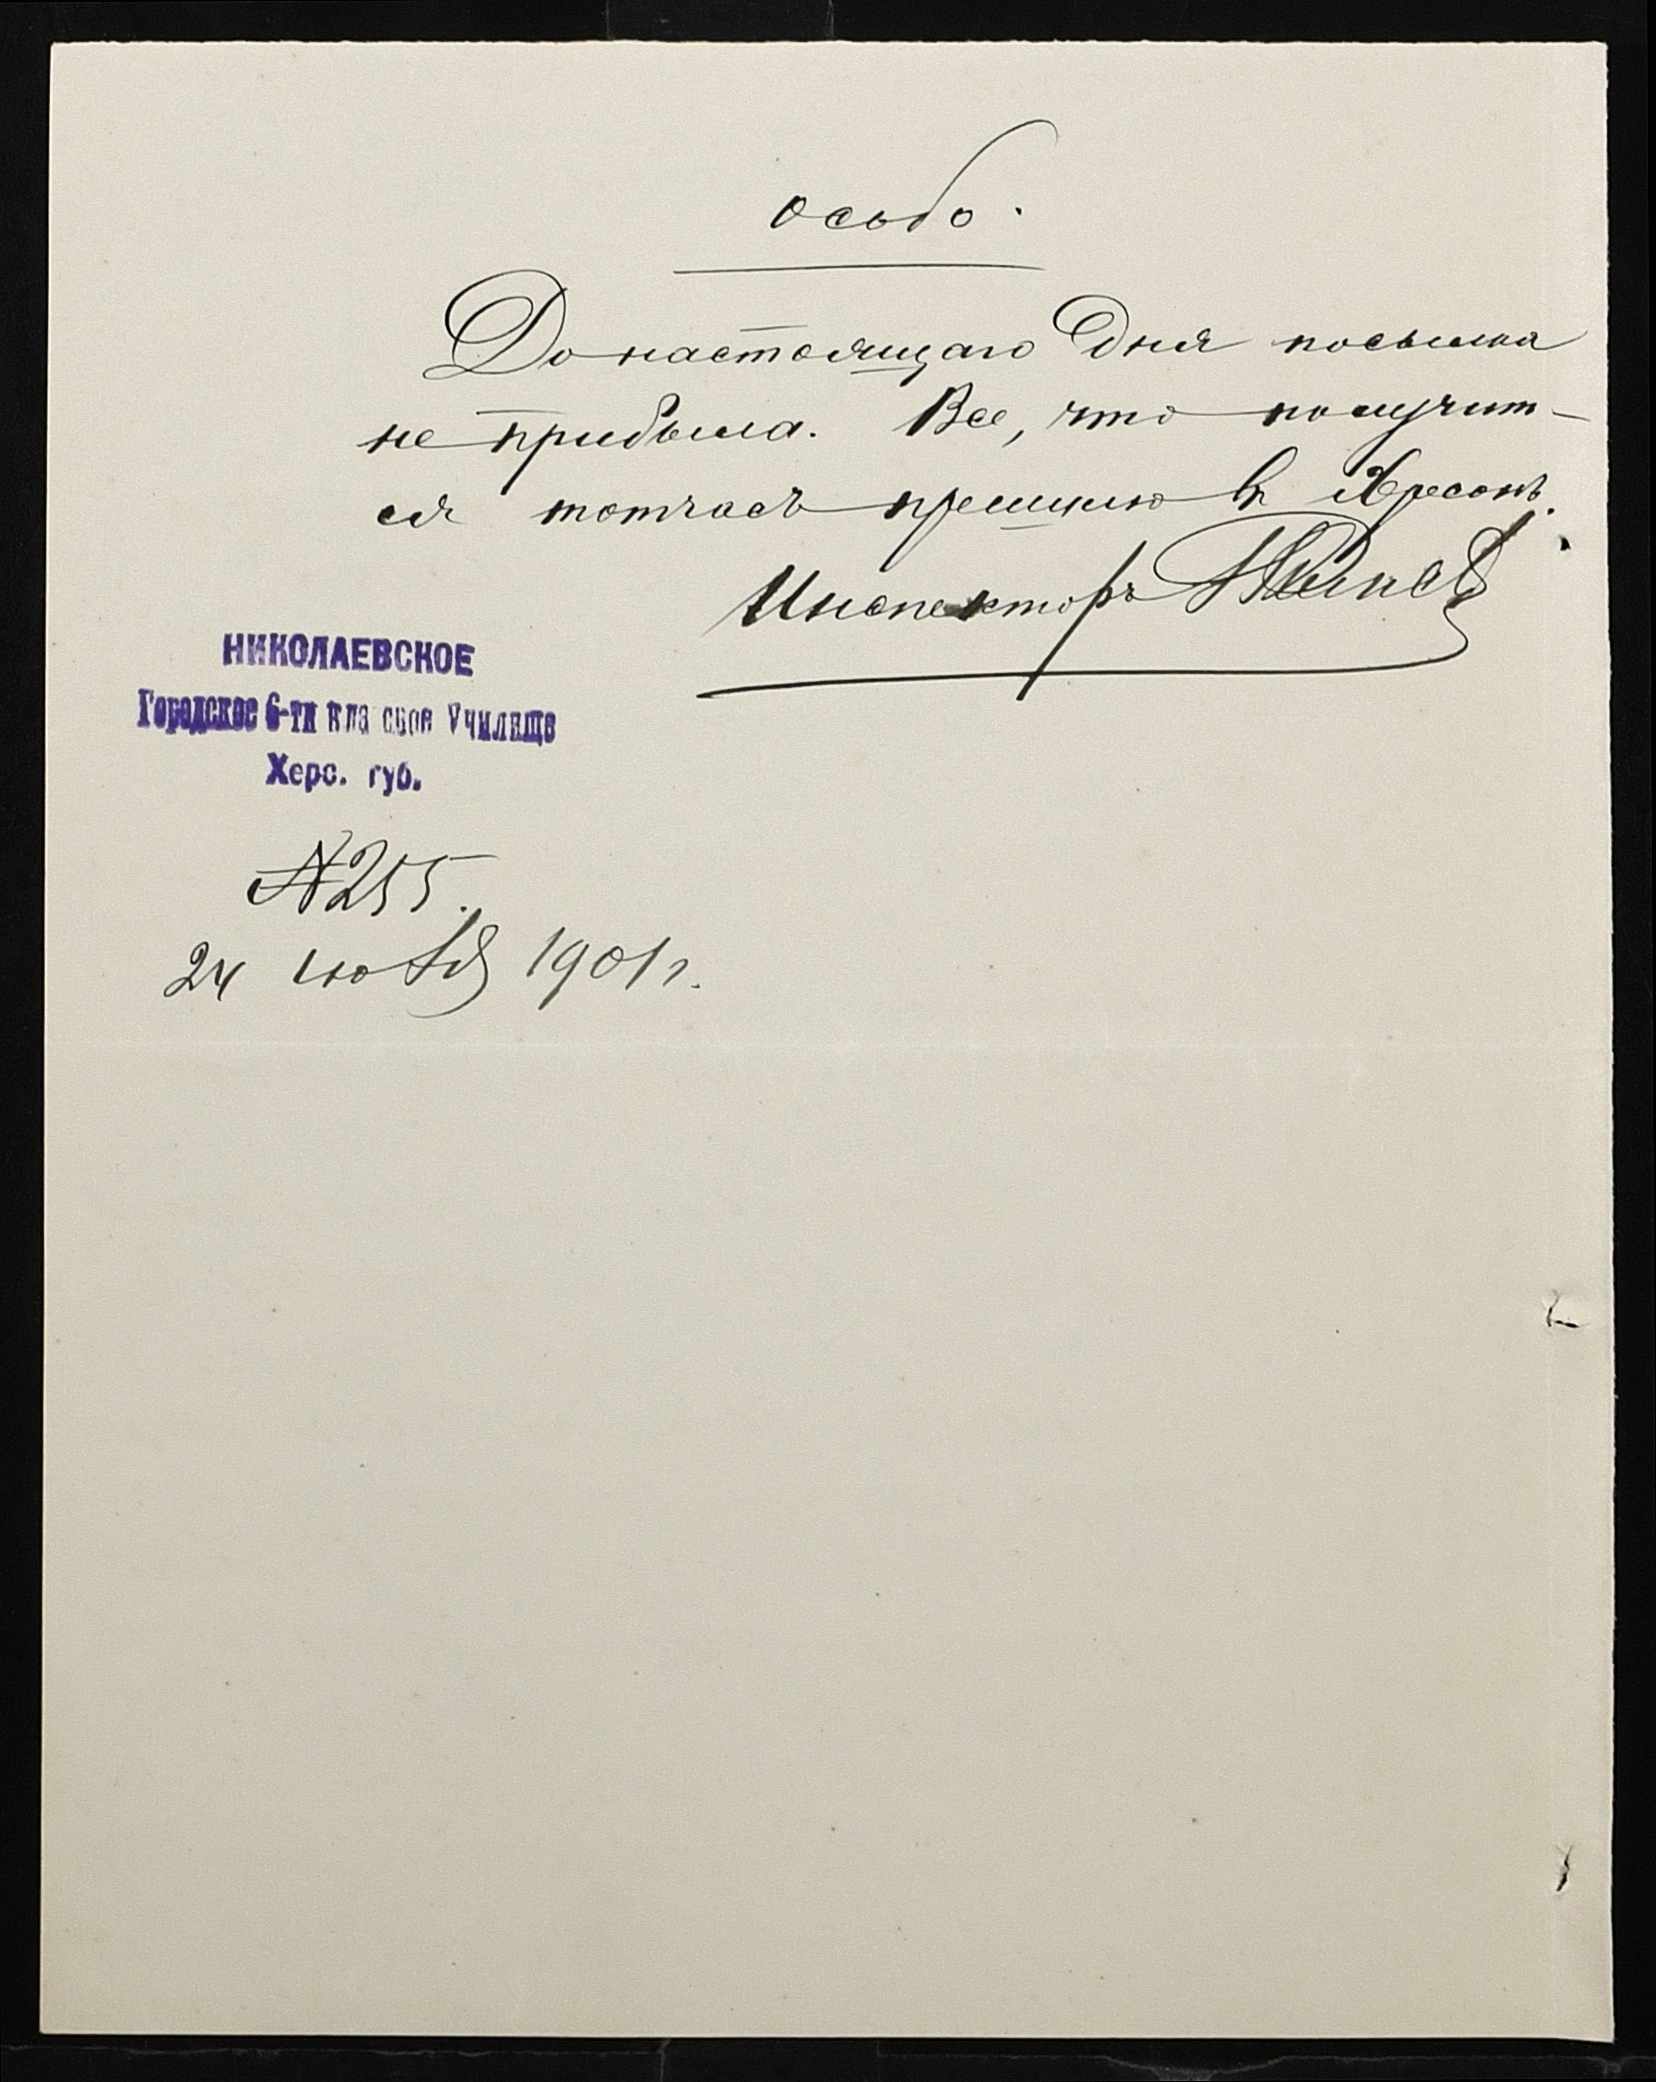 особо.
До настоящаго дня посылка
не прибыла. Все, что получит-
ся тотчасъ прешлю въ Херсонъ.
Инспекторъ
НИКОЛАЕВСКОЕ
Городское 6-ти кла сное Училище
Херс. губ.
№255.
24 июля 1901 г.